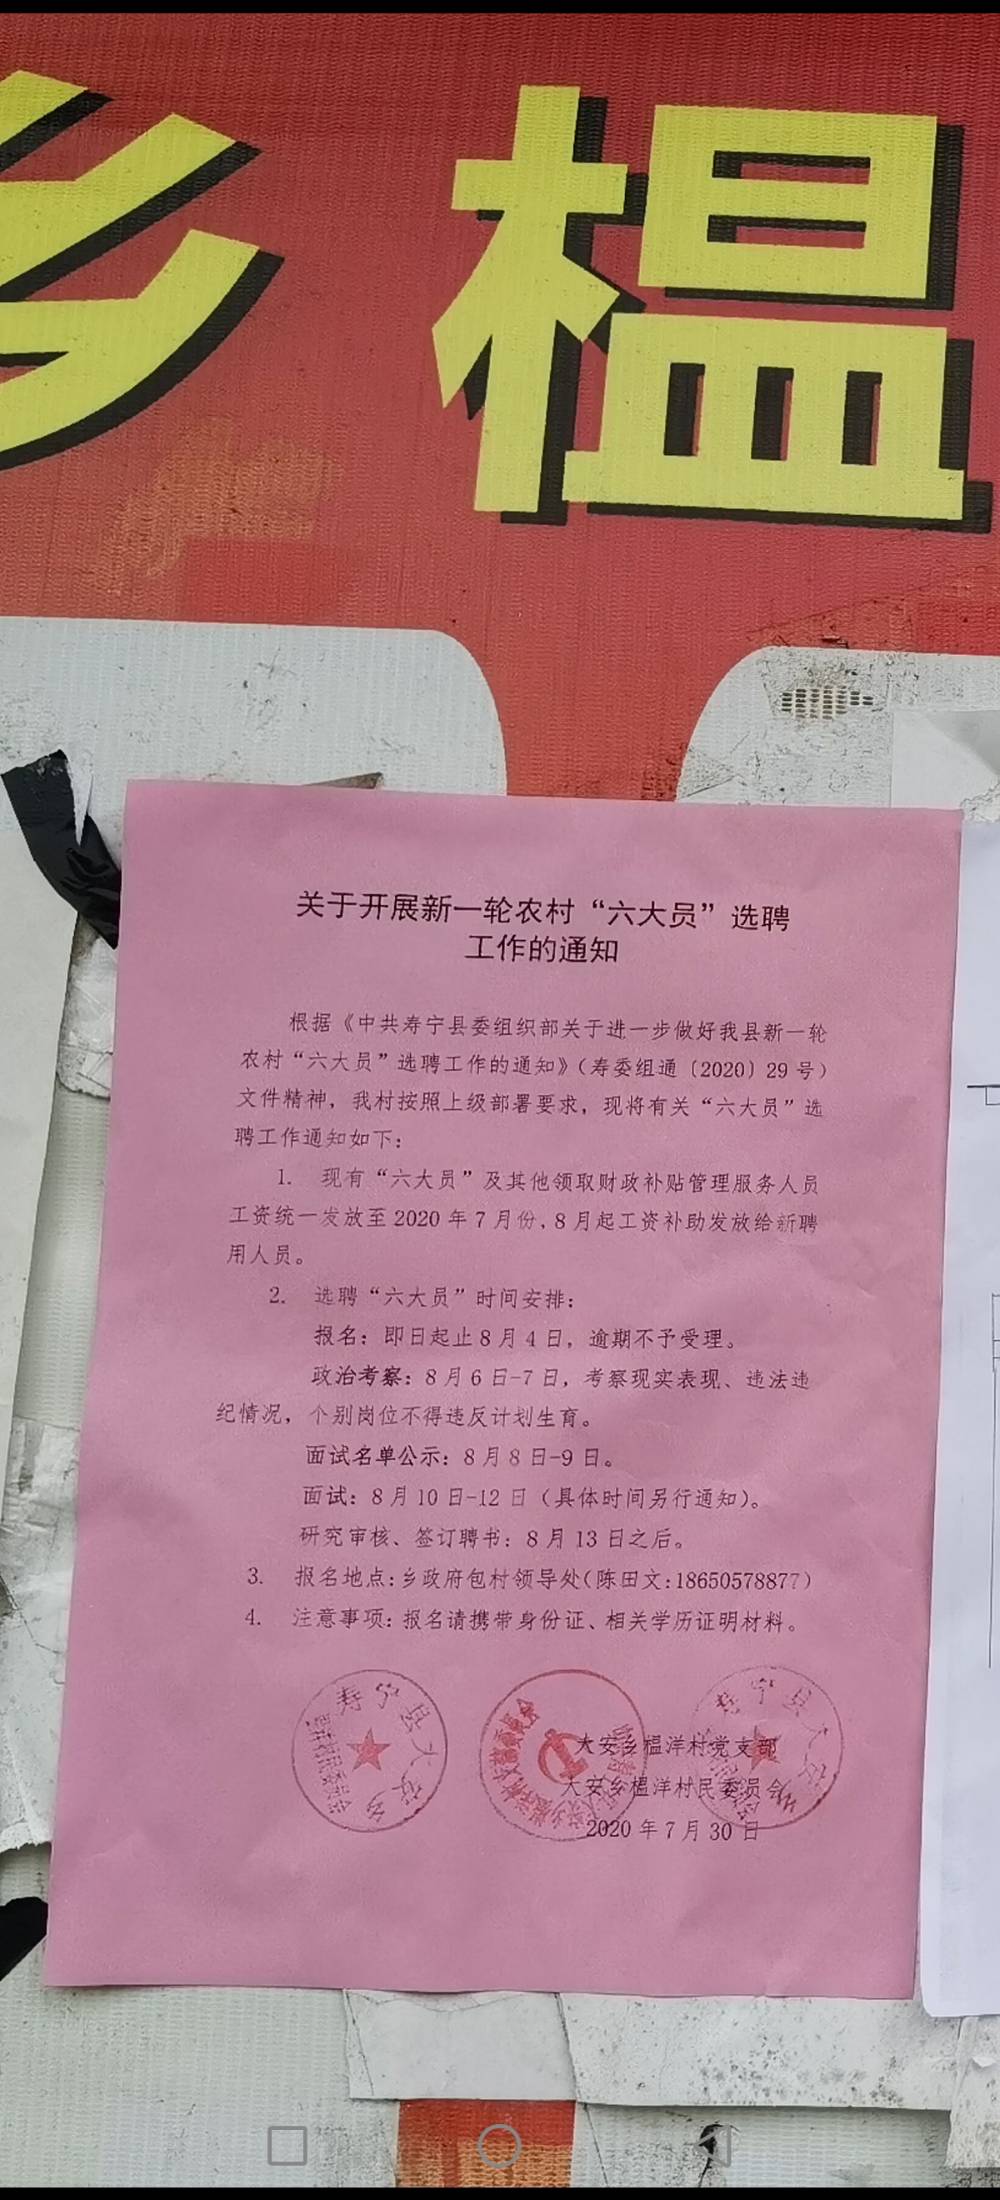 乡榅
关于开展新一轮农村“六大员”选聘
工作的通知
根据《中共寿宁县委组织部关于进一步做好我县新一轮
农村“六大员”选聘工作的通知》（寿委组通〔2020〕29号）
文件精神，我村按照上级部署要求，现将有关“六大员”选
聘工作通知如下：
1. 现有“六大员”及其他领取财政补贴管理服务人员
工资统一发放至2020年7月份，8月起工资补助发放给新聘
用人员。
2. 选聘“六大员”时间安排：
报名：即日起止8月4日，逾期不予受理。
政治考察：8月6日-7日，考察现实表现、违法违
纪情况，个别岗位不得违反计划生育。
面试名单公示：8月8日-9日。
面试：8月10日-12日（具体时间另行通知）。
研究审核、签订聘书：8月13日之后。
3. 报名地点：乡政府包村领导处（陈田文：18650578877）
4. 注意事项：报名请携带身份证、相关学历证明材料。
寿宁县大安乡
寿宁县大安乡
大安乡榅洋村党支部
大安乡榅洋村民委员会
2020年7月30日